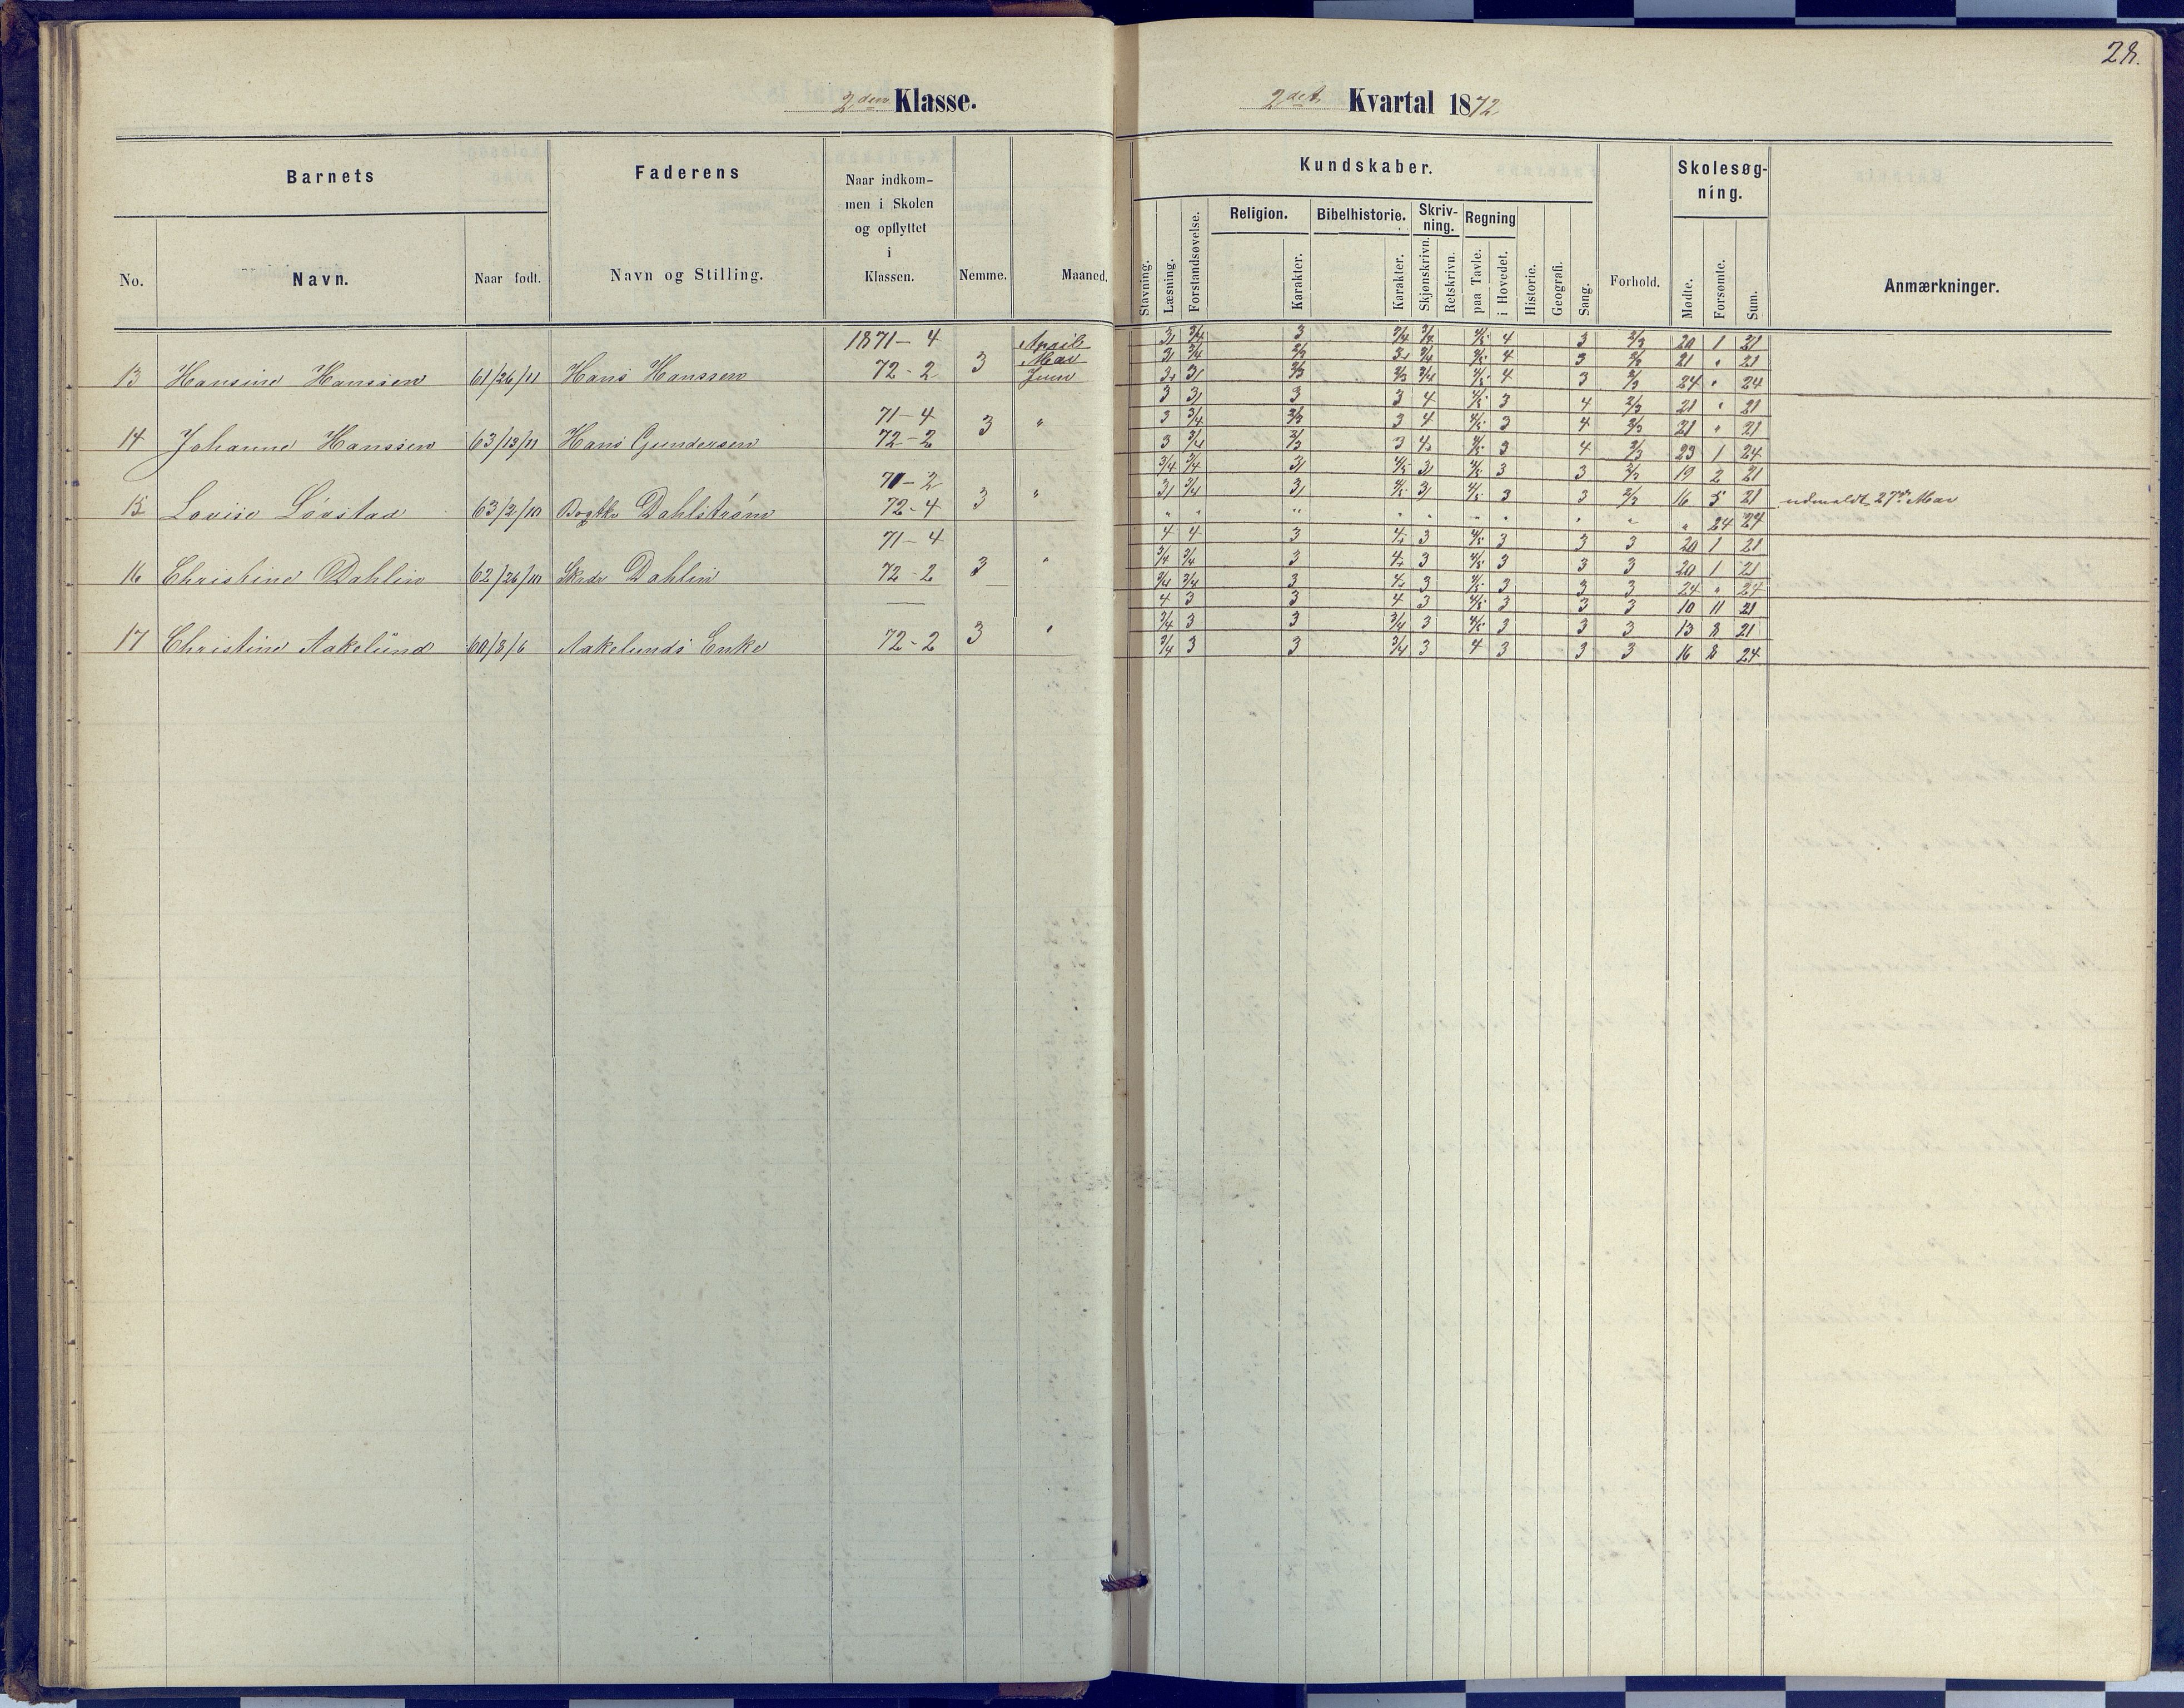 28.
2den Klasse.
2det Kvartal 1872
Barnets
Faderens
Naar indkom-
men i Skolen
og opflyttet
i
Klassen.
Nemme.
Maaned.
No.
Navn.
Naar født.
Navn og Stilling.
Kundskaber.
Skolesøg-
ning.
Religion.
Bibelhistorie.
Skriv-
ning.
Regning
Stavning.
Læsning.
Forstandsøvelse.
Karakter.
Karakter.
Skjønskrivn.
Retskrivn.
paa Tavle.
i Hovedet.
Historie.
Geografi.
Sang.
Forhold.
Mødte.
Forsømte.
Sum.
Anmærkninger.
1871-4 April 3 4 3 2/3 20 1 21
Mai 4 3 2/3 21 " 21
13 Hansine Hanssen 61/26/11 Hans Hanssen 72-2 3 Juni 4 3 2/3 24 " 24
71-4 3 3 3 4 4/5 3 4 2/3 21 " 21
3 3/4 2/3 3 4 4/5 3 4 2/3 21 " 21
14 Johanne Hanssen 63/13/11 Hans Gundersen 72-2 3 " 3 3/4 2/3 3 4 4/5 3 4 2/3 23 1 24
71-2 3/4 3/4 3 4/5 3 4/5 3 3 2/3 19 2 21
3 3/4 3 4/5 3 4/5 3 3 2/3 16 5 21 udmeldt 27de Mai
15 Lovise Løvstad 63/2/10 Dahlstrøm 72-4 3 " " " " " " " " " " " 24 24
71-4 4 4 3 4/5 3 4/5 3 3 3 20 1 21
3/4 3/4 3 4 3 4/5 3 3 3 20 1 21
16 Christine Dahlin 62/26/10 Skrdr Dahlin 72-2 3 " 3/4 3/4 3 4 3 4/5 3 3 3 24 " 24
— 4 3 3 4 3 4/5 3 3 3 10 11 21
3/4 3 3 3/4 3 4/5 3 3 3 13 8 21
17 Christine Aakelund 60/8/6 Aakelunds Enke 72-2 3 " 3/4 3 3 3/4 3 4 3 3 3 16 8 24